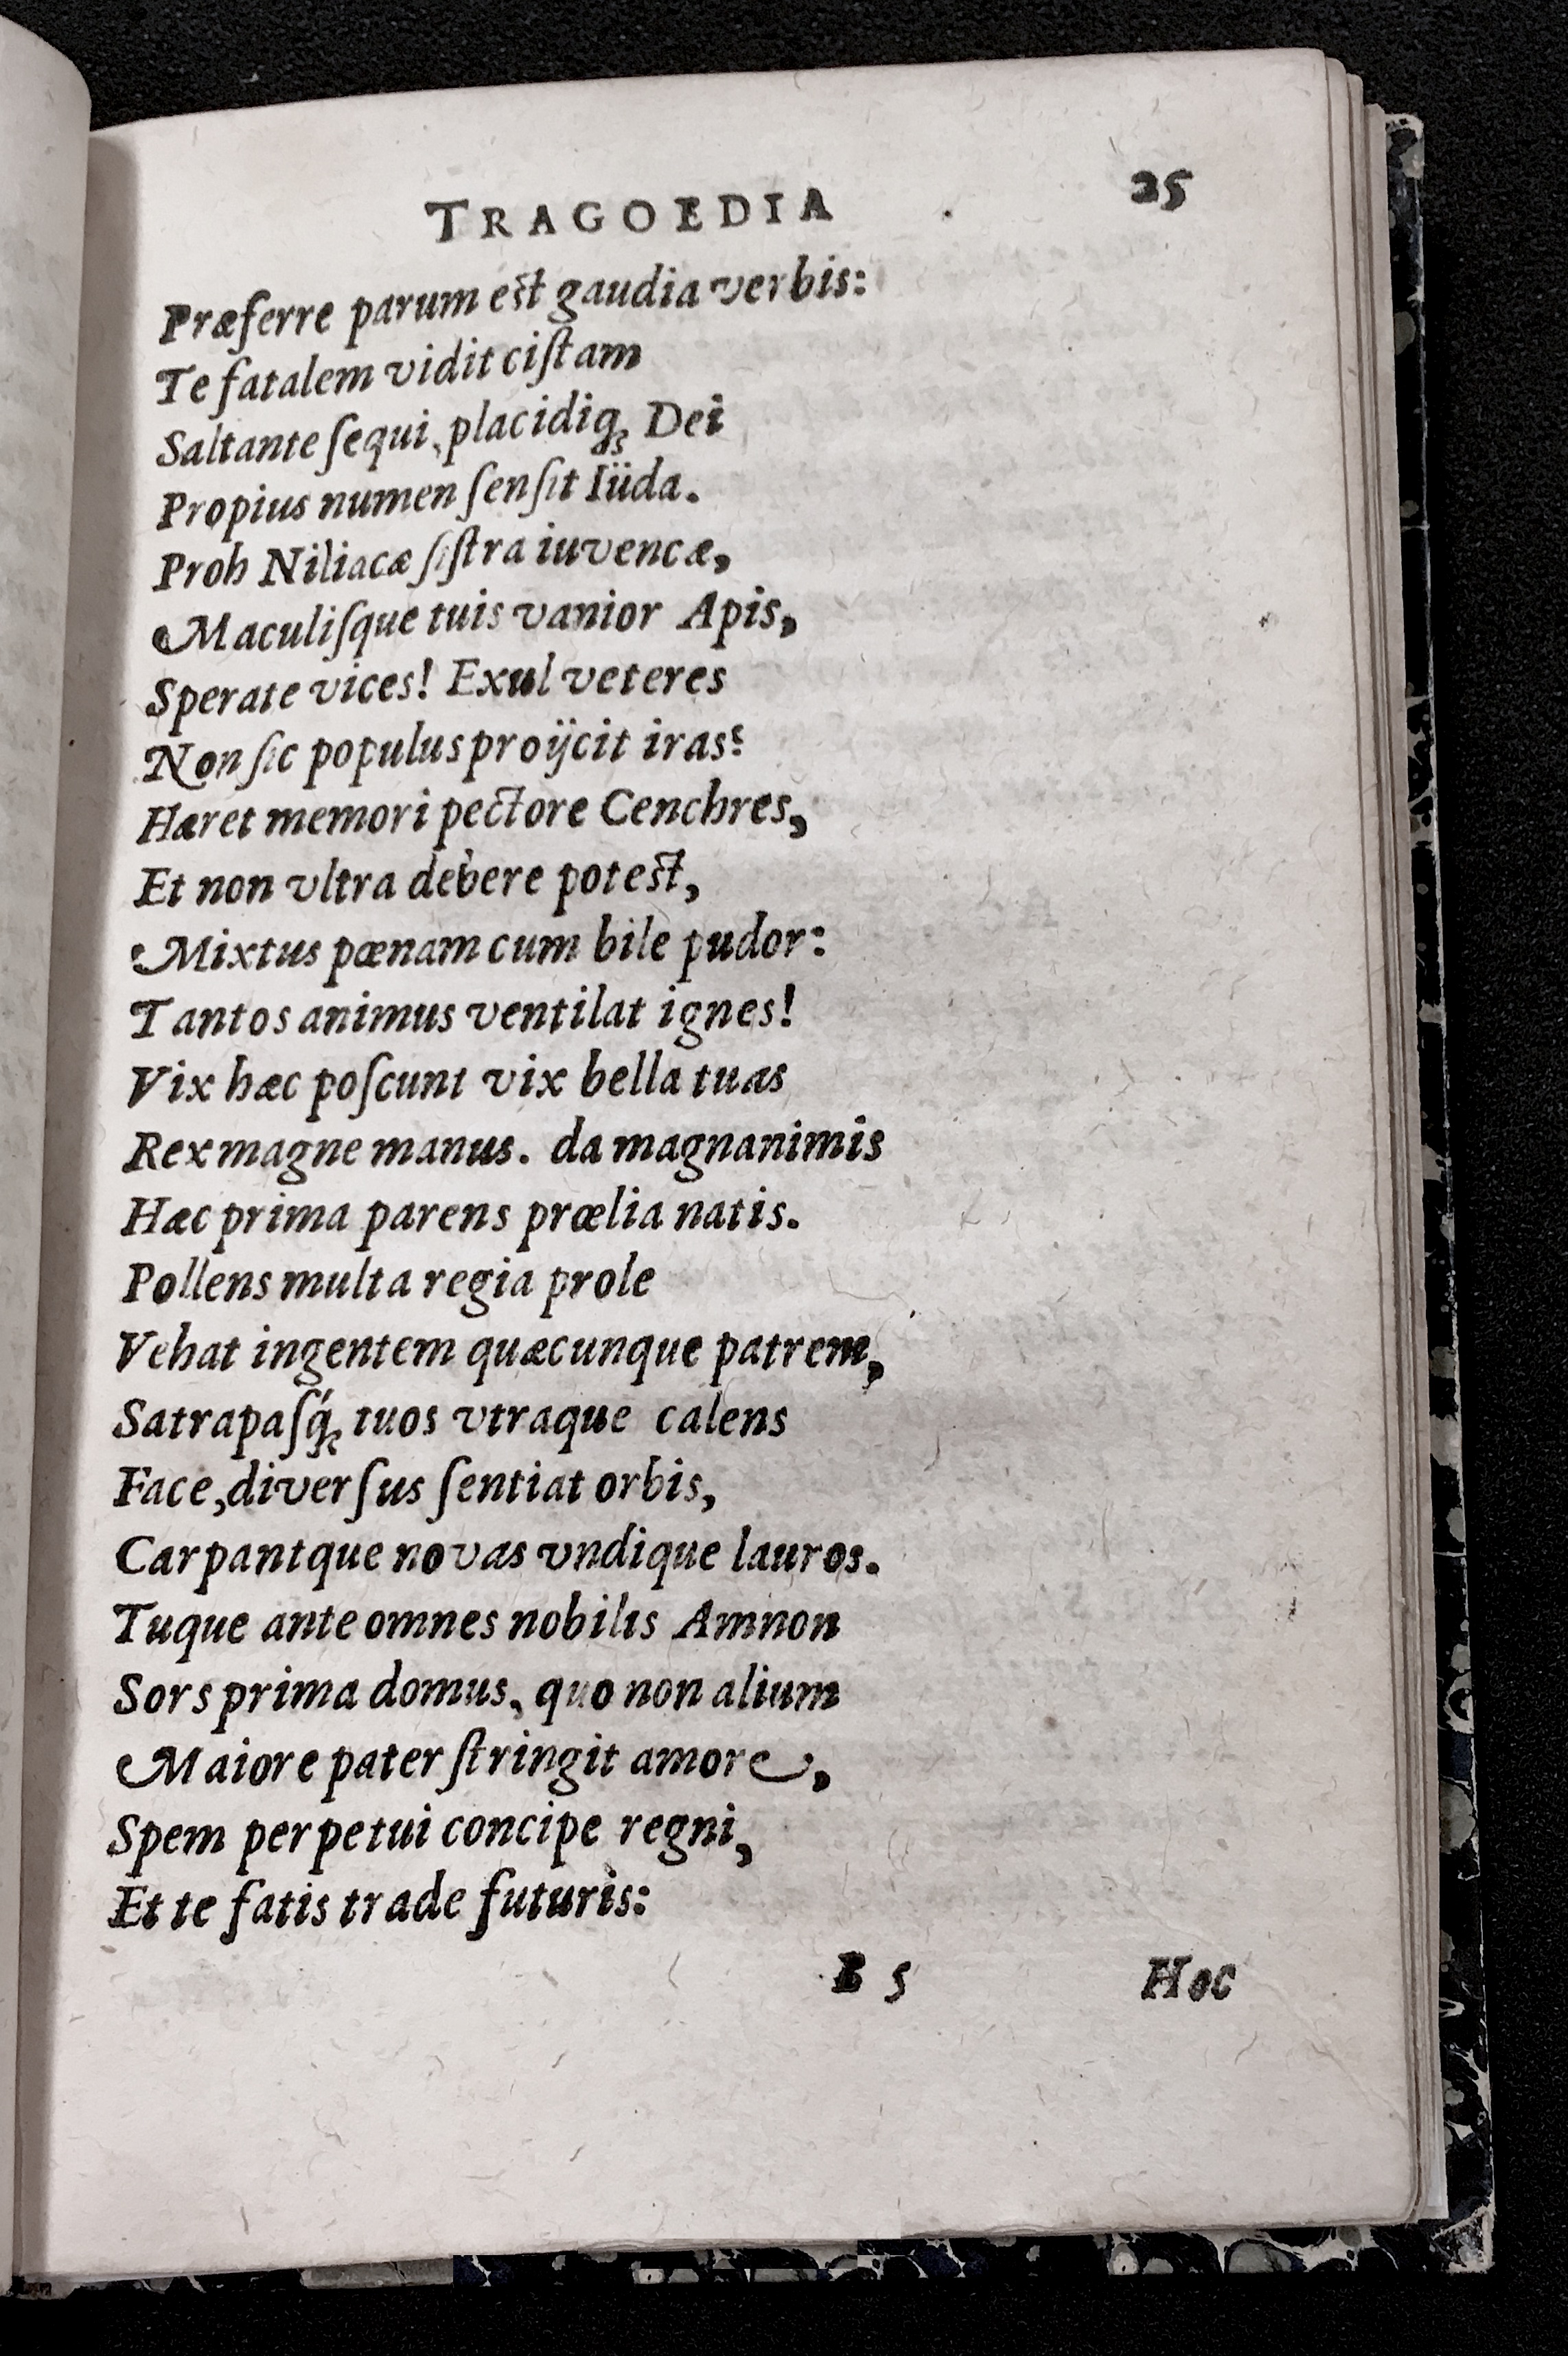 TRAGOEDIA 25
Præferre parum est gaudia verbis:
Te fatalem vidit ciſtam
Saltante ſequi, placidiq́; Dei
Propius numen ſenſit Iüda.
Proh Niliacæ ſiſtra iuvencæ,
Maculiſque tuis vanior Apis,
Sperate vices! Exul veteres
Non ſic populus proijcit iras:
Hæret memori pectore Cenchres,
Et non vltra debere potest,
Mixtus pœnam cum bile pudor:
Tantos animus ventilat ignes!
Vix hæc poſcunt vix bella tuas
Rex magne manus. da magnanimis
Hæc prima parens prœlia natis.
Pollens multa regia prole
Vehat ingentem quæcunque patrem,
Satrapaſq́; tuos vtraque calens
Face, diverſus ſentiat orbis,
Carpantque novas vndique lauros.
Tuque ante omnes nobilis Amnon
Sors prima domus, quo non alium
Maiore pater ſtringit amore,
Spem perpetui concipe regni,
Et te fatis trade futuris:
B 5 Hoc